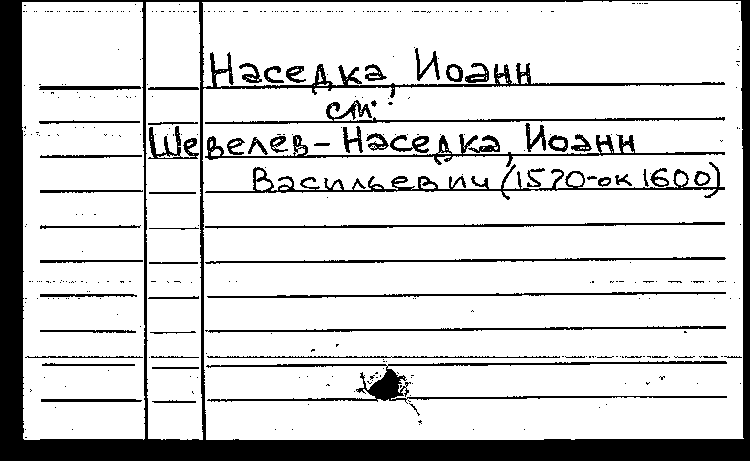 Наседка, Иоанн
см:
Шевелев - Наседка, Иоанн
Васильевич (1570-ок 1600)